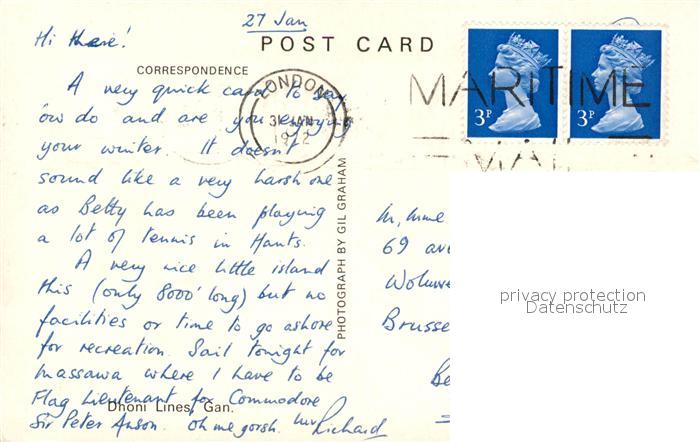 27 Jan
Hi there!
POST CARD
CORRESPONDENCE
A very quick card to say
'ow do and are you enjoying
your winter. It doesn't
sound like a very harsh one
as Betty has been playing
a lot of tennis in Hants.
A very nice little island
this (only 8000' long) but no
facilities or time to go ashore
for recreation. Sail tonight for
Massawa where I have to be
Flag Lieutenant for Commodore
Sir Peter Anson. Oh me gorsh.
Richard
Dhoni Lines, Gan.
PHOTOGRAPH BY GIL GRAHAM
LONDON
31 JAN
1972
MARITIME
MAIL
3P
3P
69
Brusse
privacy protection
Datenschutz